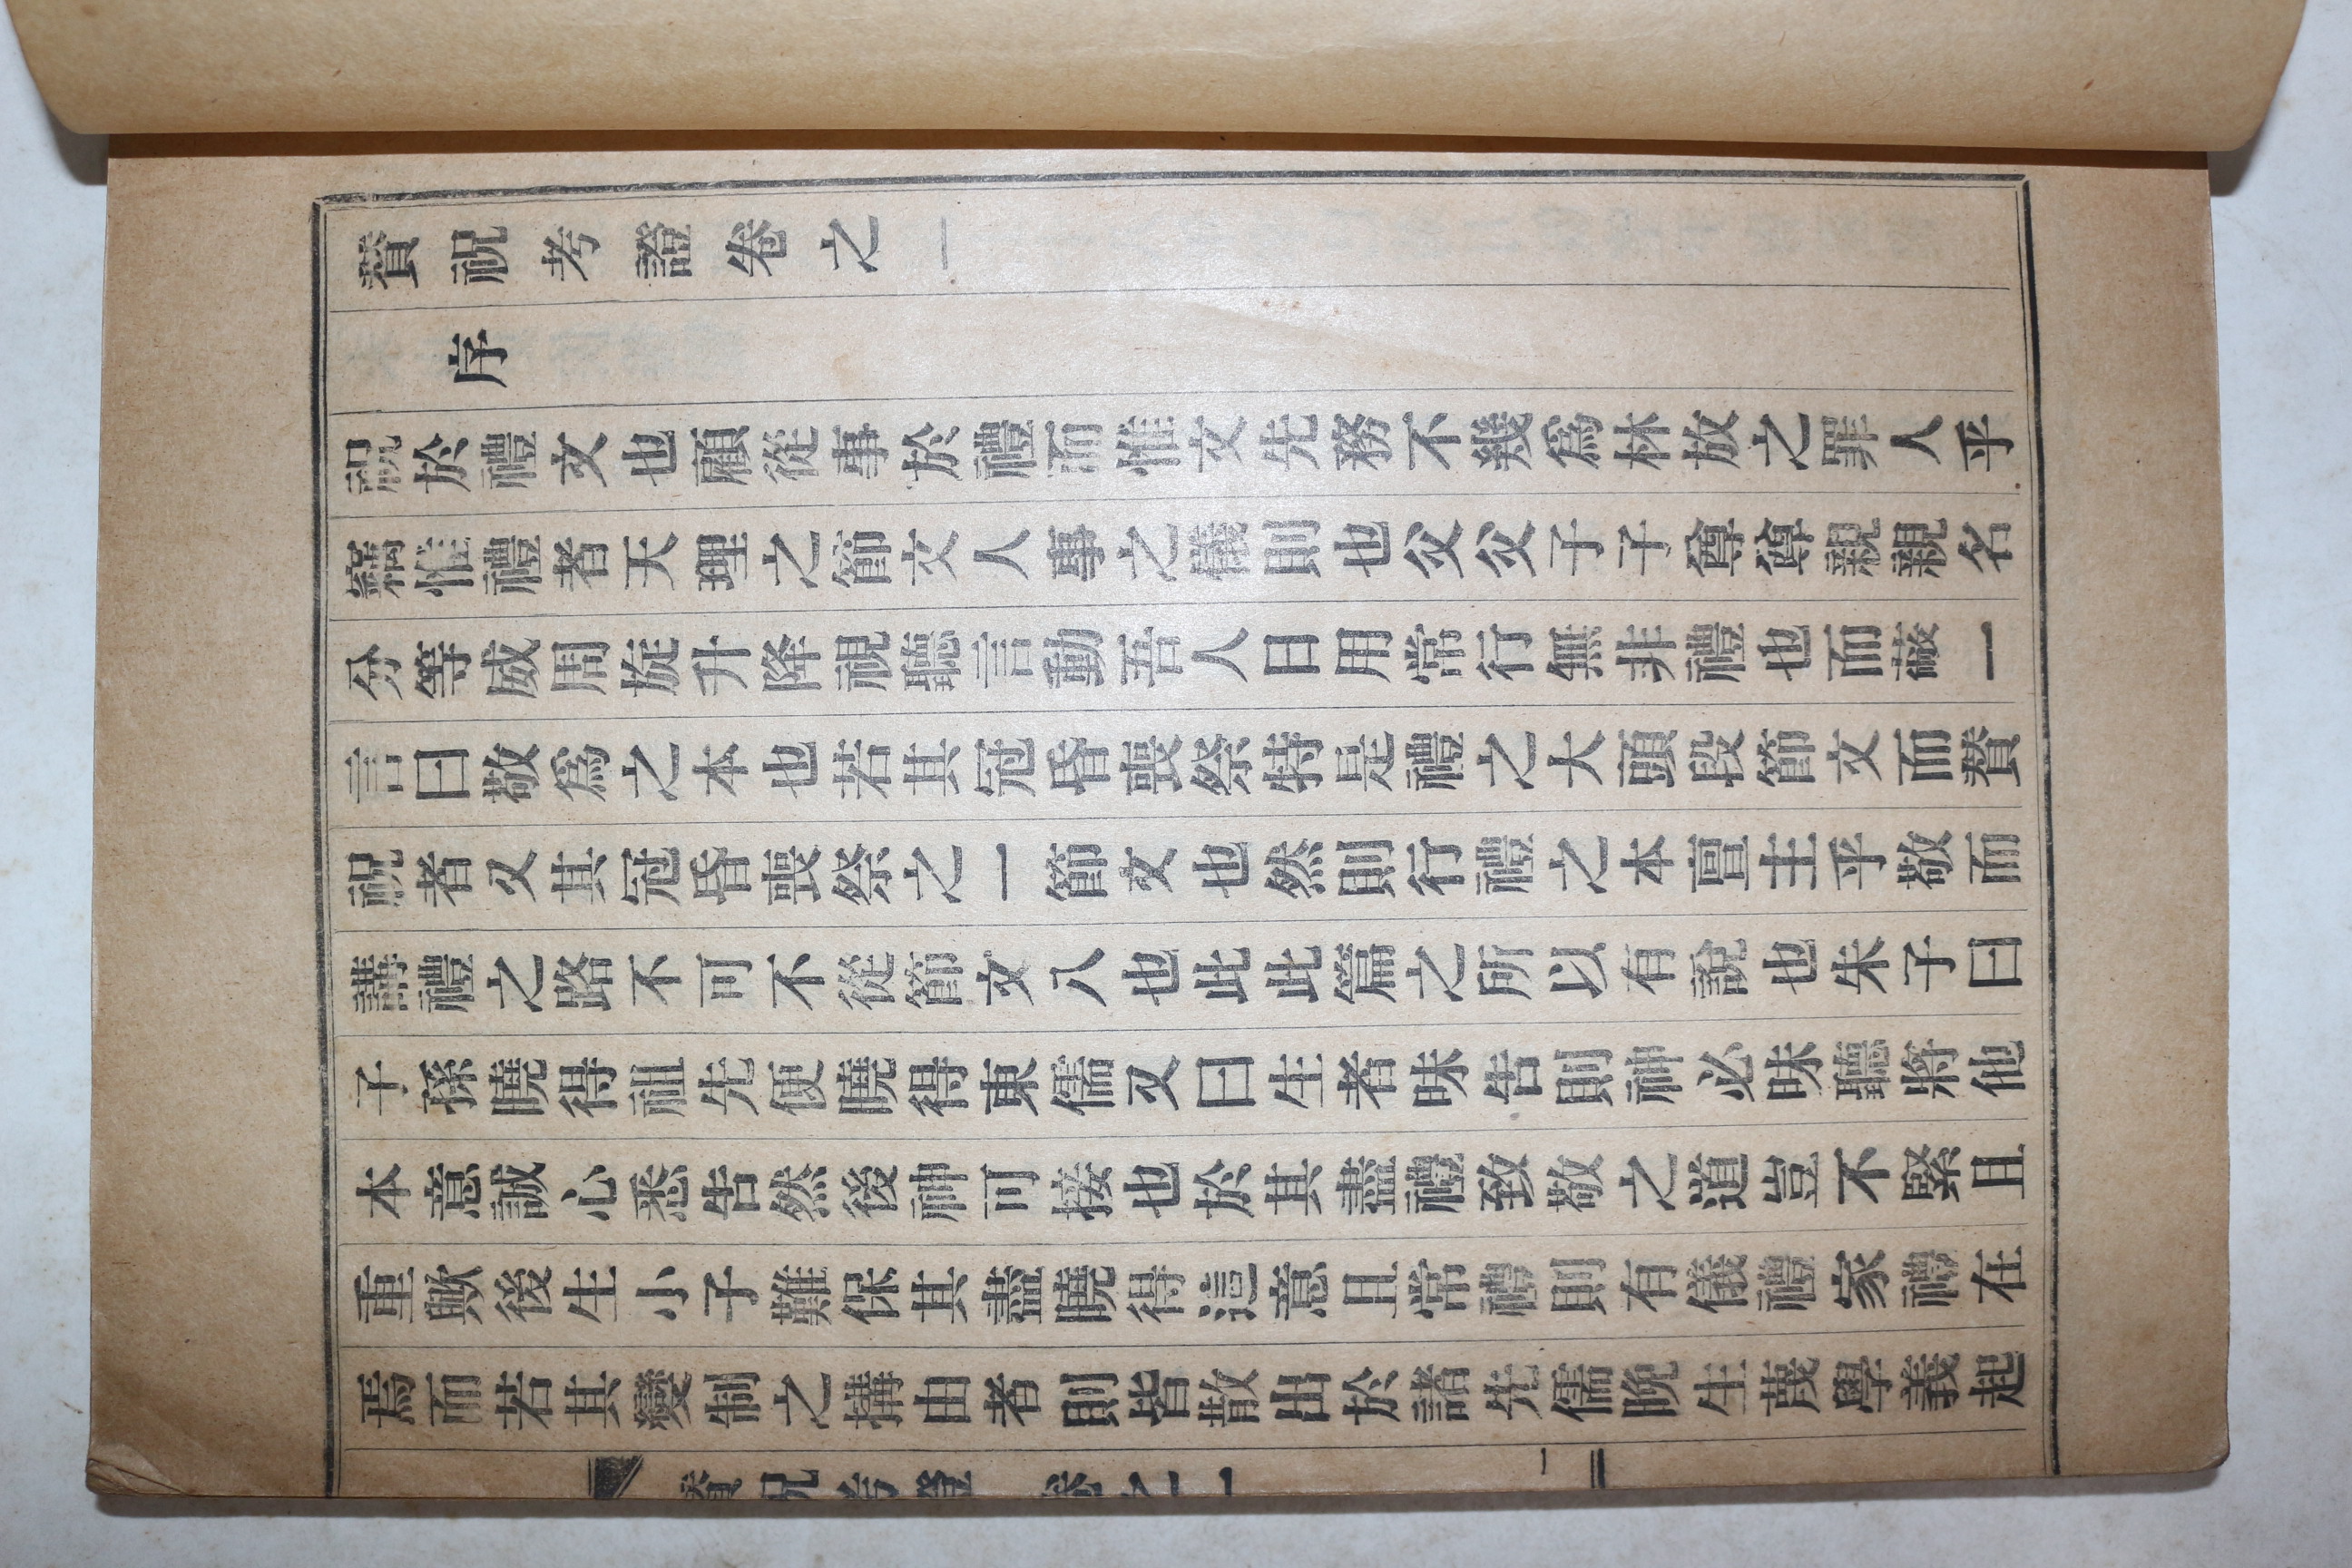 賛祝考證卷之一
序
祝於禮文也顧從事於禮而惟文先務不幾爲林放之罪人乎
竊惟禮者天理之節文人事之儀則也父父子子尊尊親親名
分等威周旋升降視聽言動吾人日用常行無非禮也而蔽一
言曰敬爲之本也若其冠昏喪祭特是禮之大頭段節文而賛
祝者又其冠昏喪祭之一節文也然則行禮之本亶主乎敬而
講禮之路不可不從節文入也此此篇之所以有說也朱子曰
子孫曉得祖先便曉得東儒又曰生者昧告則神必昧聽將他
本意誠心悉告然後神可接也於其盡禮致敬之道豈不緊且
重歟後生小子難保其盡曉得這意且常禮則有儀禮家禮在
焉而若其變制之搆由者則皆散出於諸先儒晩生蔑學義起
賛祝考證 卷之一 一